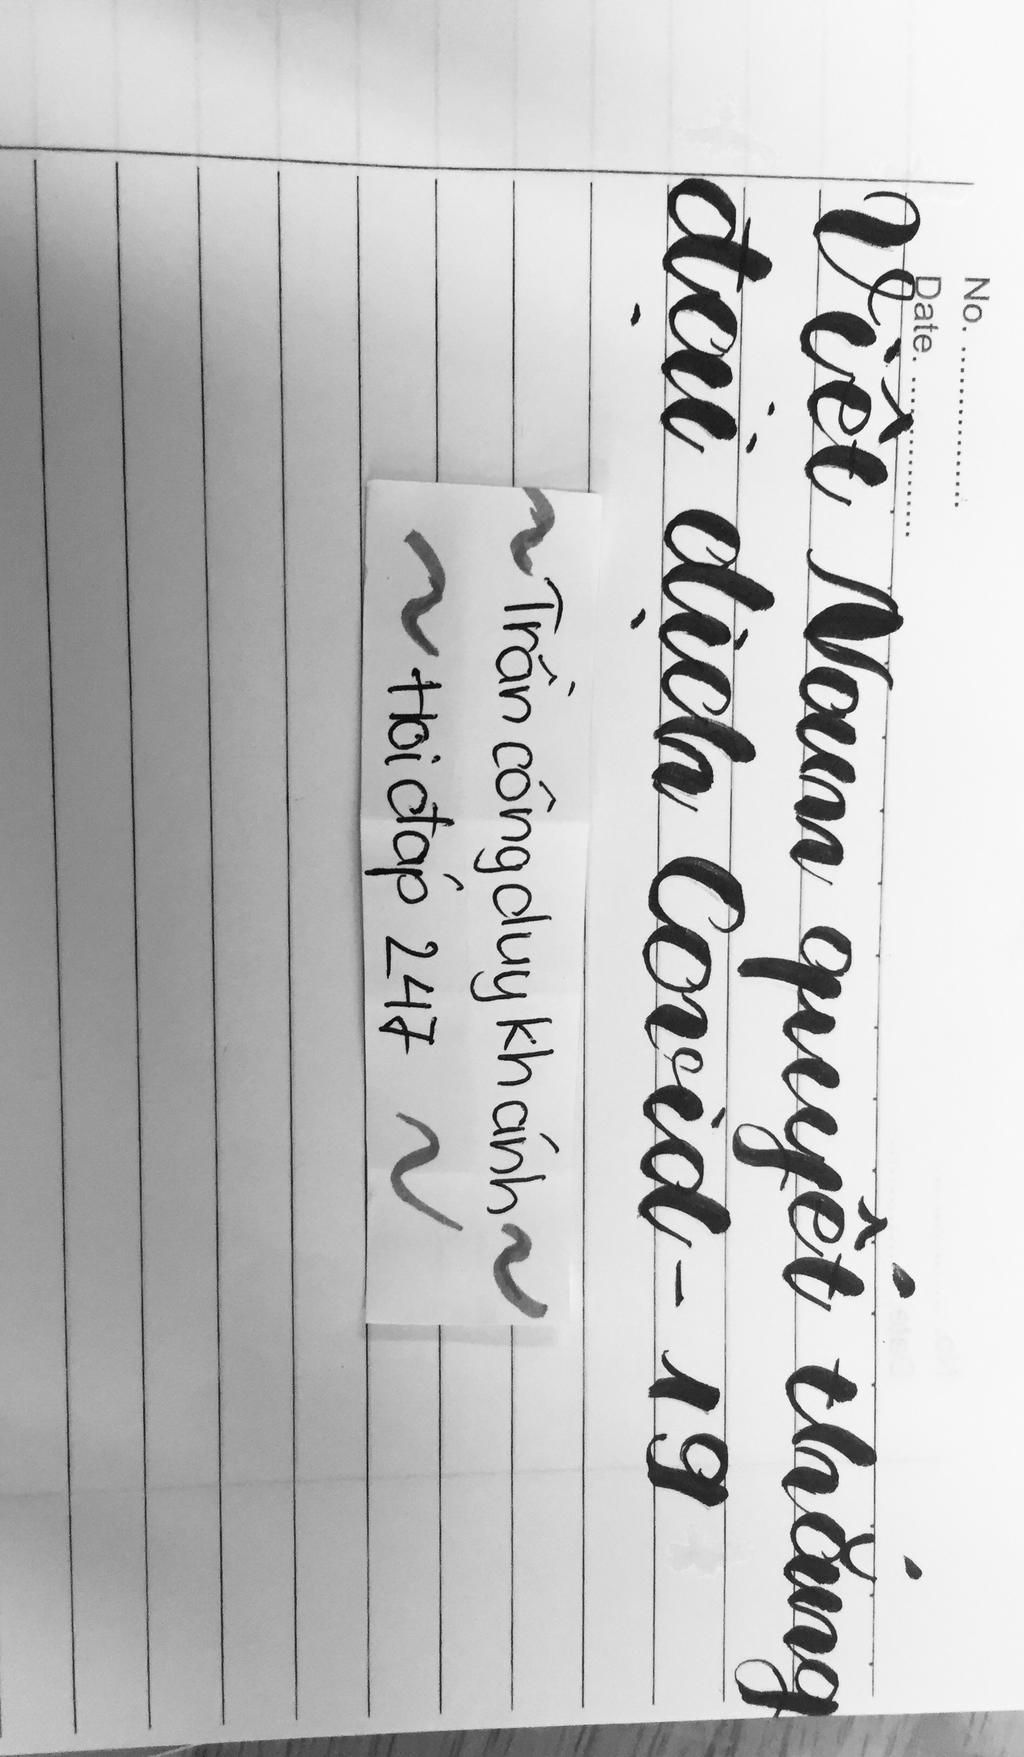 No. ................
Date. ................
Việt Nam quyết thắng
đại dịch Covid - 19
~ Trần công duy khánh ~
~ Hỏi đáp 247 ~